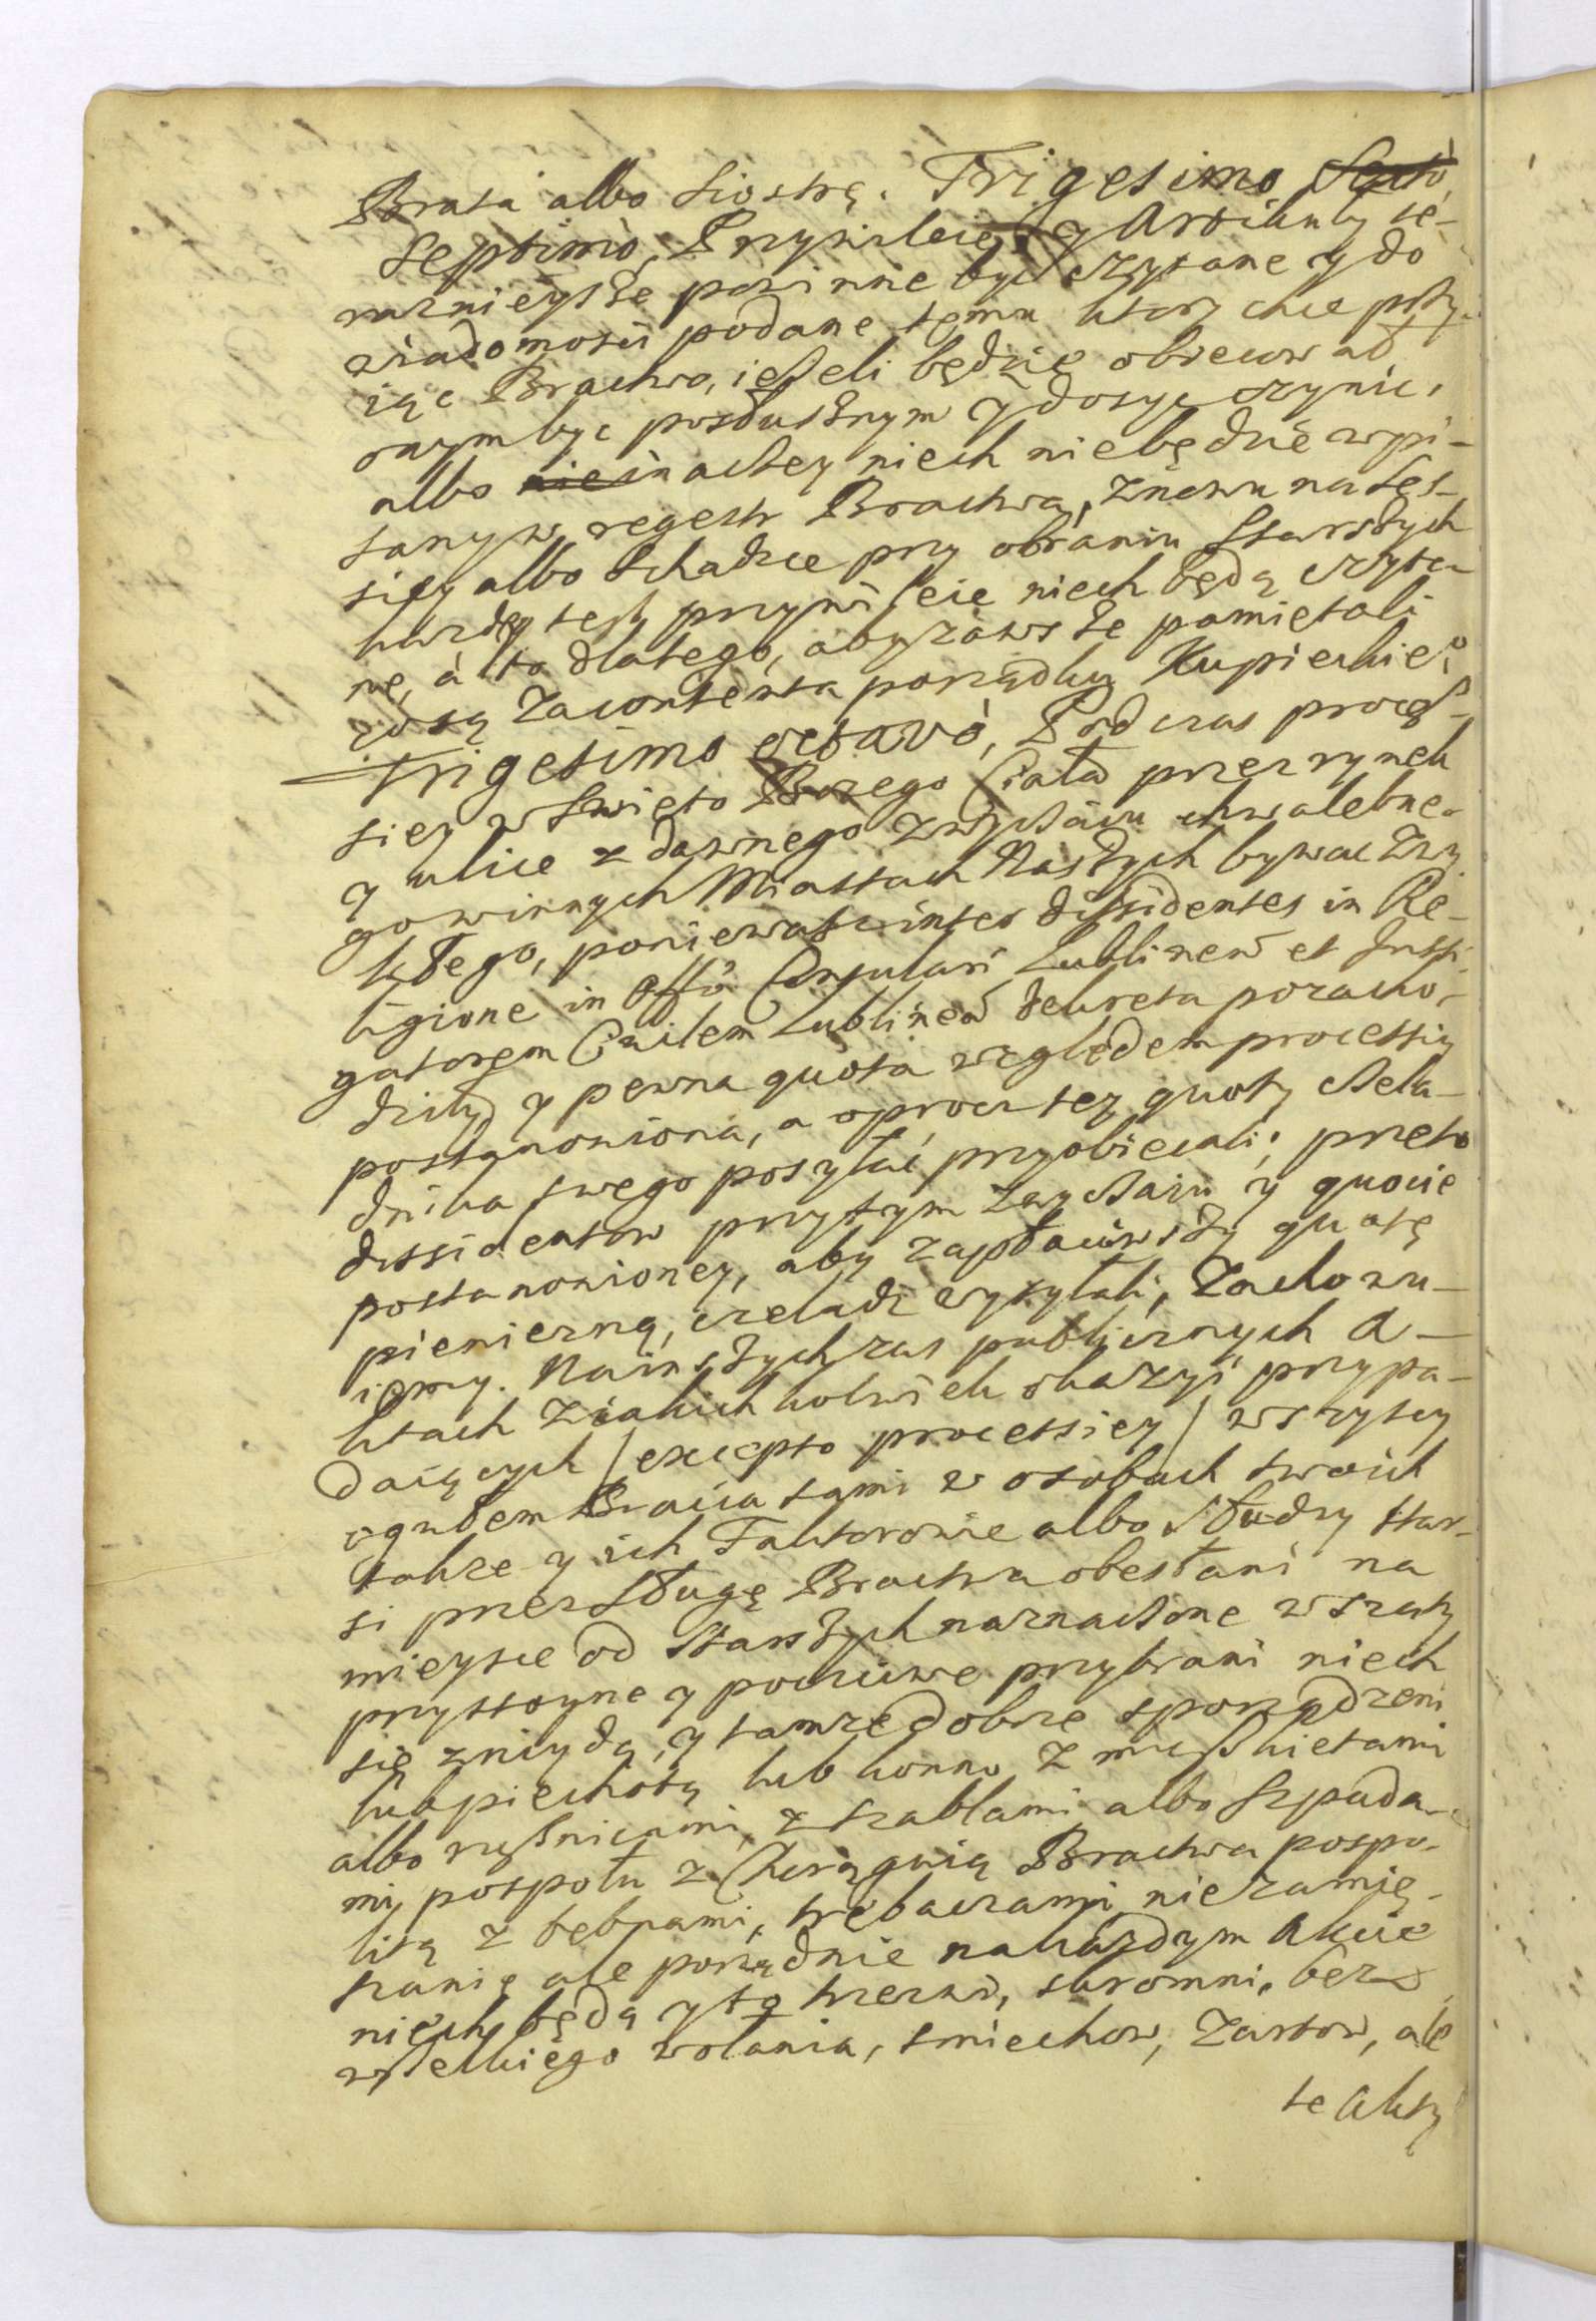 Brata albo Siostrę. Trigesimo Sexto,
Septimo, Przywileie y Artikuły te-
raznieysze powinne być czytane y do
wiadomości podane temu ktory chce przy-
iąc Bractwo, iesli będzie obiecował
onym byc posłusznym y dosyc czynic,
albo nie inaczey niech niebędzie wpi-
sany w regestr Bractwa, znowu na Ses-
siey albo Schadzce przy obraniu Starszych
kazdey tesz przywileie niech będą czyta-
ne, á to dlatego, aby zawsze pamiętali
co są za contenta porządku Kupieckie°
Trigesimo octavò, Pod czas proces-
siey w Swięto Bozego Ciała przez rynek
y ulice z dawnego zwyczaiu chwalebne-
go w innych Miastach Naszych bywac zwy
kłego, poniewasz inter dissidentes in Re-
ligione in Offõ Consulari Lublinen et Insti-
gatorem Civilem Lublinen dekreta pozacho-
dziły, y pewna quota względem processiy
postanowiona, a oprocz tey quoty czela-
dnika swego posyłać przyobiecali; przeto
dissidentow przy tym zwyczaiu y quocie
postanowioney, aby zapłaciwszy quotę
pienieżną, czeladz wysyłali, zachowu-
iemy. Na inszych zas publicznych A-
ktach z iakich kolwiek okazyi przypa-
daiących / excepto processiey / wszyscy
ogułem Bracia sami w osobach swoich
takze y ich Faktorowie albo Słudzy star-
si przez Sługę Bractwa obesłani na
mieysce od Starszych naznaczone w szaty
przystoyne y poczciwe przybrani niech
się znidą, y tamze dobrze sporządzeni
lub piechotą lub konno z muszkietami
albo rusznicami, z szablami albo Szpada-
mi, pospołu z Chorągwią Bractwa pospo-
litą z bębnami, trębaczami, nie zamię-
szanię ale porządnie na kazdym Akcie
niech będą y to trzezwi, skromni, bez
wszelkiego wołania, smiechow, Zartow, ale
te Akty